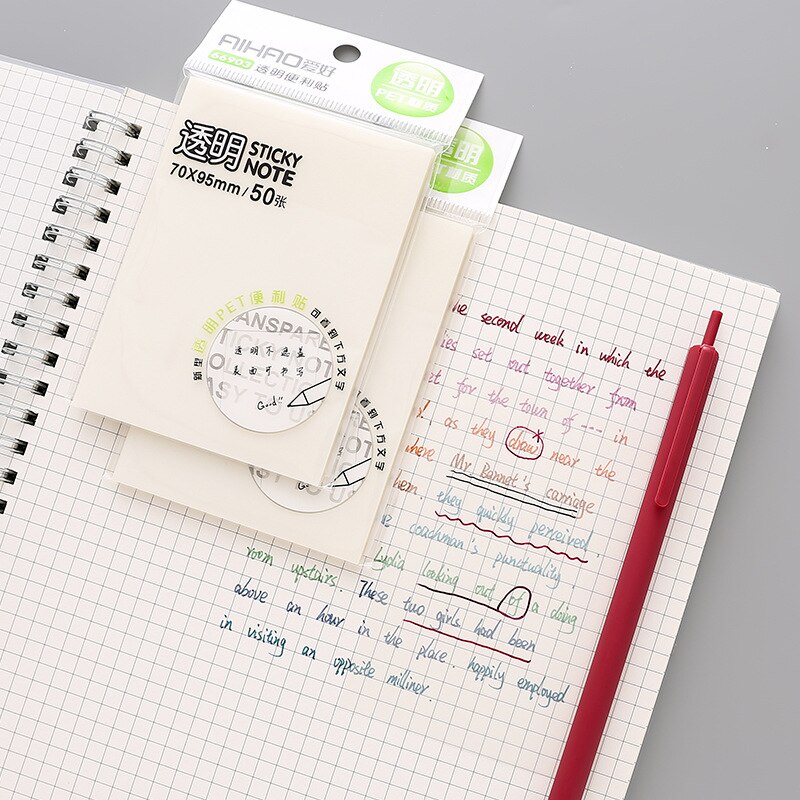 AIHAO爱好
66903 透明便利贴
透明
PET材质
透明
透明 STICKY NOTE
70X95mm/50张
新型透明PET便利贴 可看到下方文字
TRANSPARE
STICKY NOT
COLLECTION
EASY TO US
透明不遮盖
表面可书写
Good!!
看到下方文字
the second week in which the
ies set out together from
for the town of --- in
as they draw near the
where Mr. Bennet's carriage
them. they quickly perceived.
coachman's punctuality
room upstairs. Lydia looking out of a dining
above an hour in the place. These two girls had been
in visiting an opposite milliner. happily employed